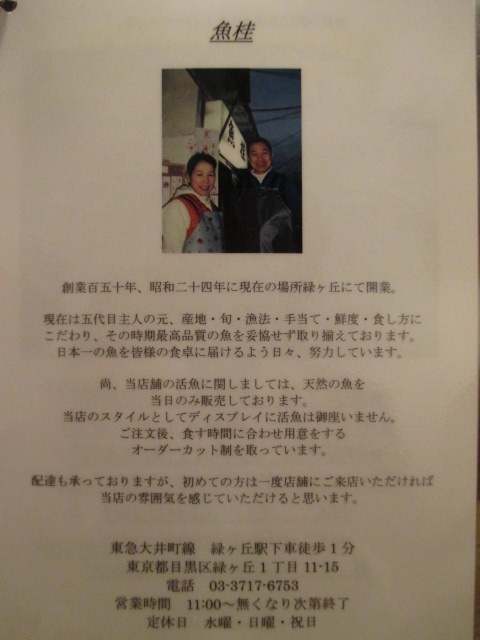 魚桂
魚桂
創業百五十年、昭和二十四年に現在の場所緑ヶ丘にて開業。
現在は五代目主人の元、産地・旬・漁法・手当て・鮮度・食し方に
こだわり、その時期最高品質の魚を妥協せず取り揃えております。
日本一の魚を皆様の食卓に届けるよう日々、努力しています。
尚、当店舗の活魚に関しましては、天然の魚を
当日のみ販売しております。
当店のスタイルとしてディスプレイに活魚は御座いません。
ご注文後、食す時間に合わせ用意をする
オーダーカット制を取っています。
配達も承っておりますが、初めての方は一度店舗にご来店いただければ
当店の雰囲気を感じていただけると思います。
東急大井町線　緑ヶ丘駅下車徒歩１分
東京都目黒区緑ヶ丘１丁目 11-15
電話　03-3717-6753
営業時間　11:00～無くなり次第終了
定休日　水曜・日曜・祝日